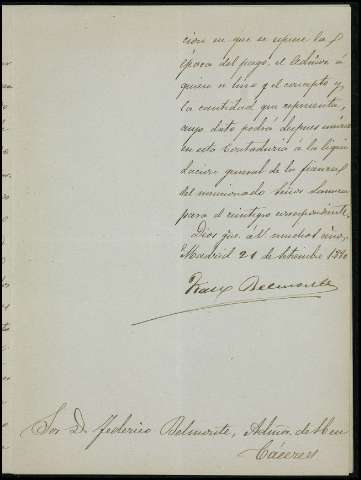 cion en que se espere la
época del pago, el Admor á
quien se hizo y el concepto y
la cantidad que representa,
cuyo dato podrá despues unirse
en esta Contaduria á la liqui
dacion general de la fianza
del mencionado Señor
para el reintegro correspondiente.
Dios gue. á V. muchos años,
Madrid 21 de Setiembre 1880
Belmonte
Sor D. Federico Belmonte, Admor. de
Cáceres